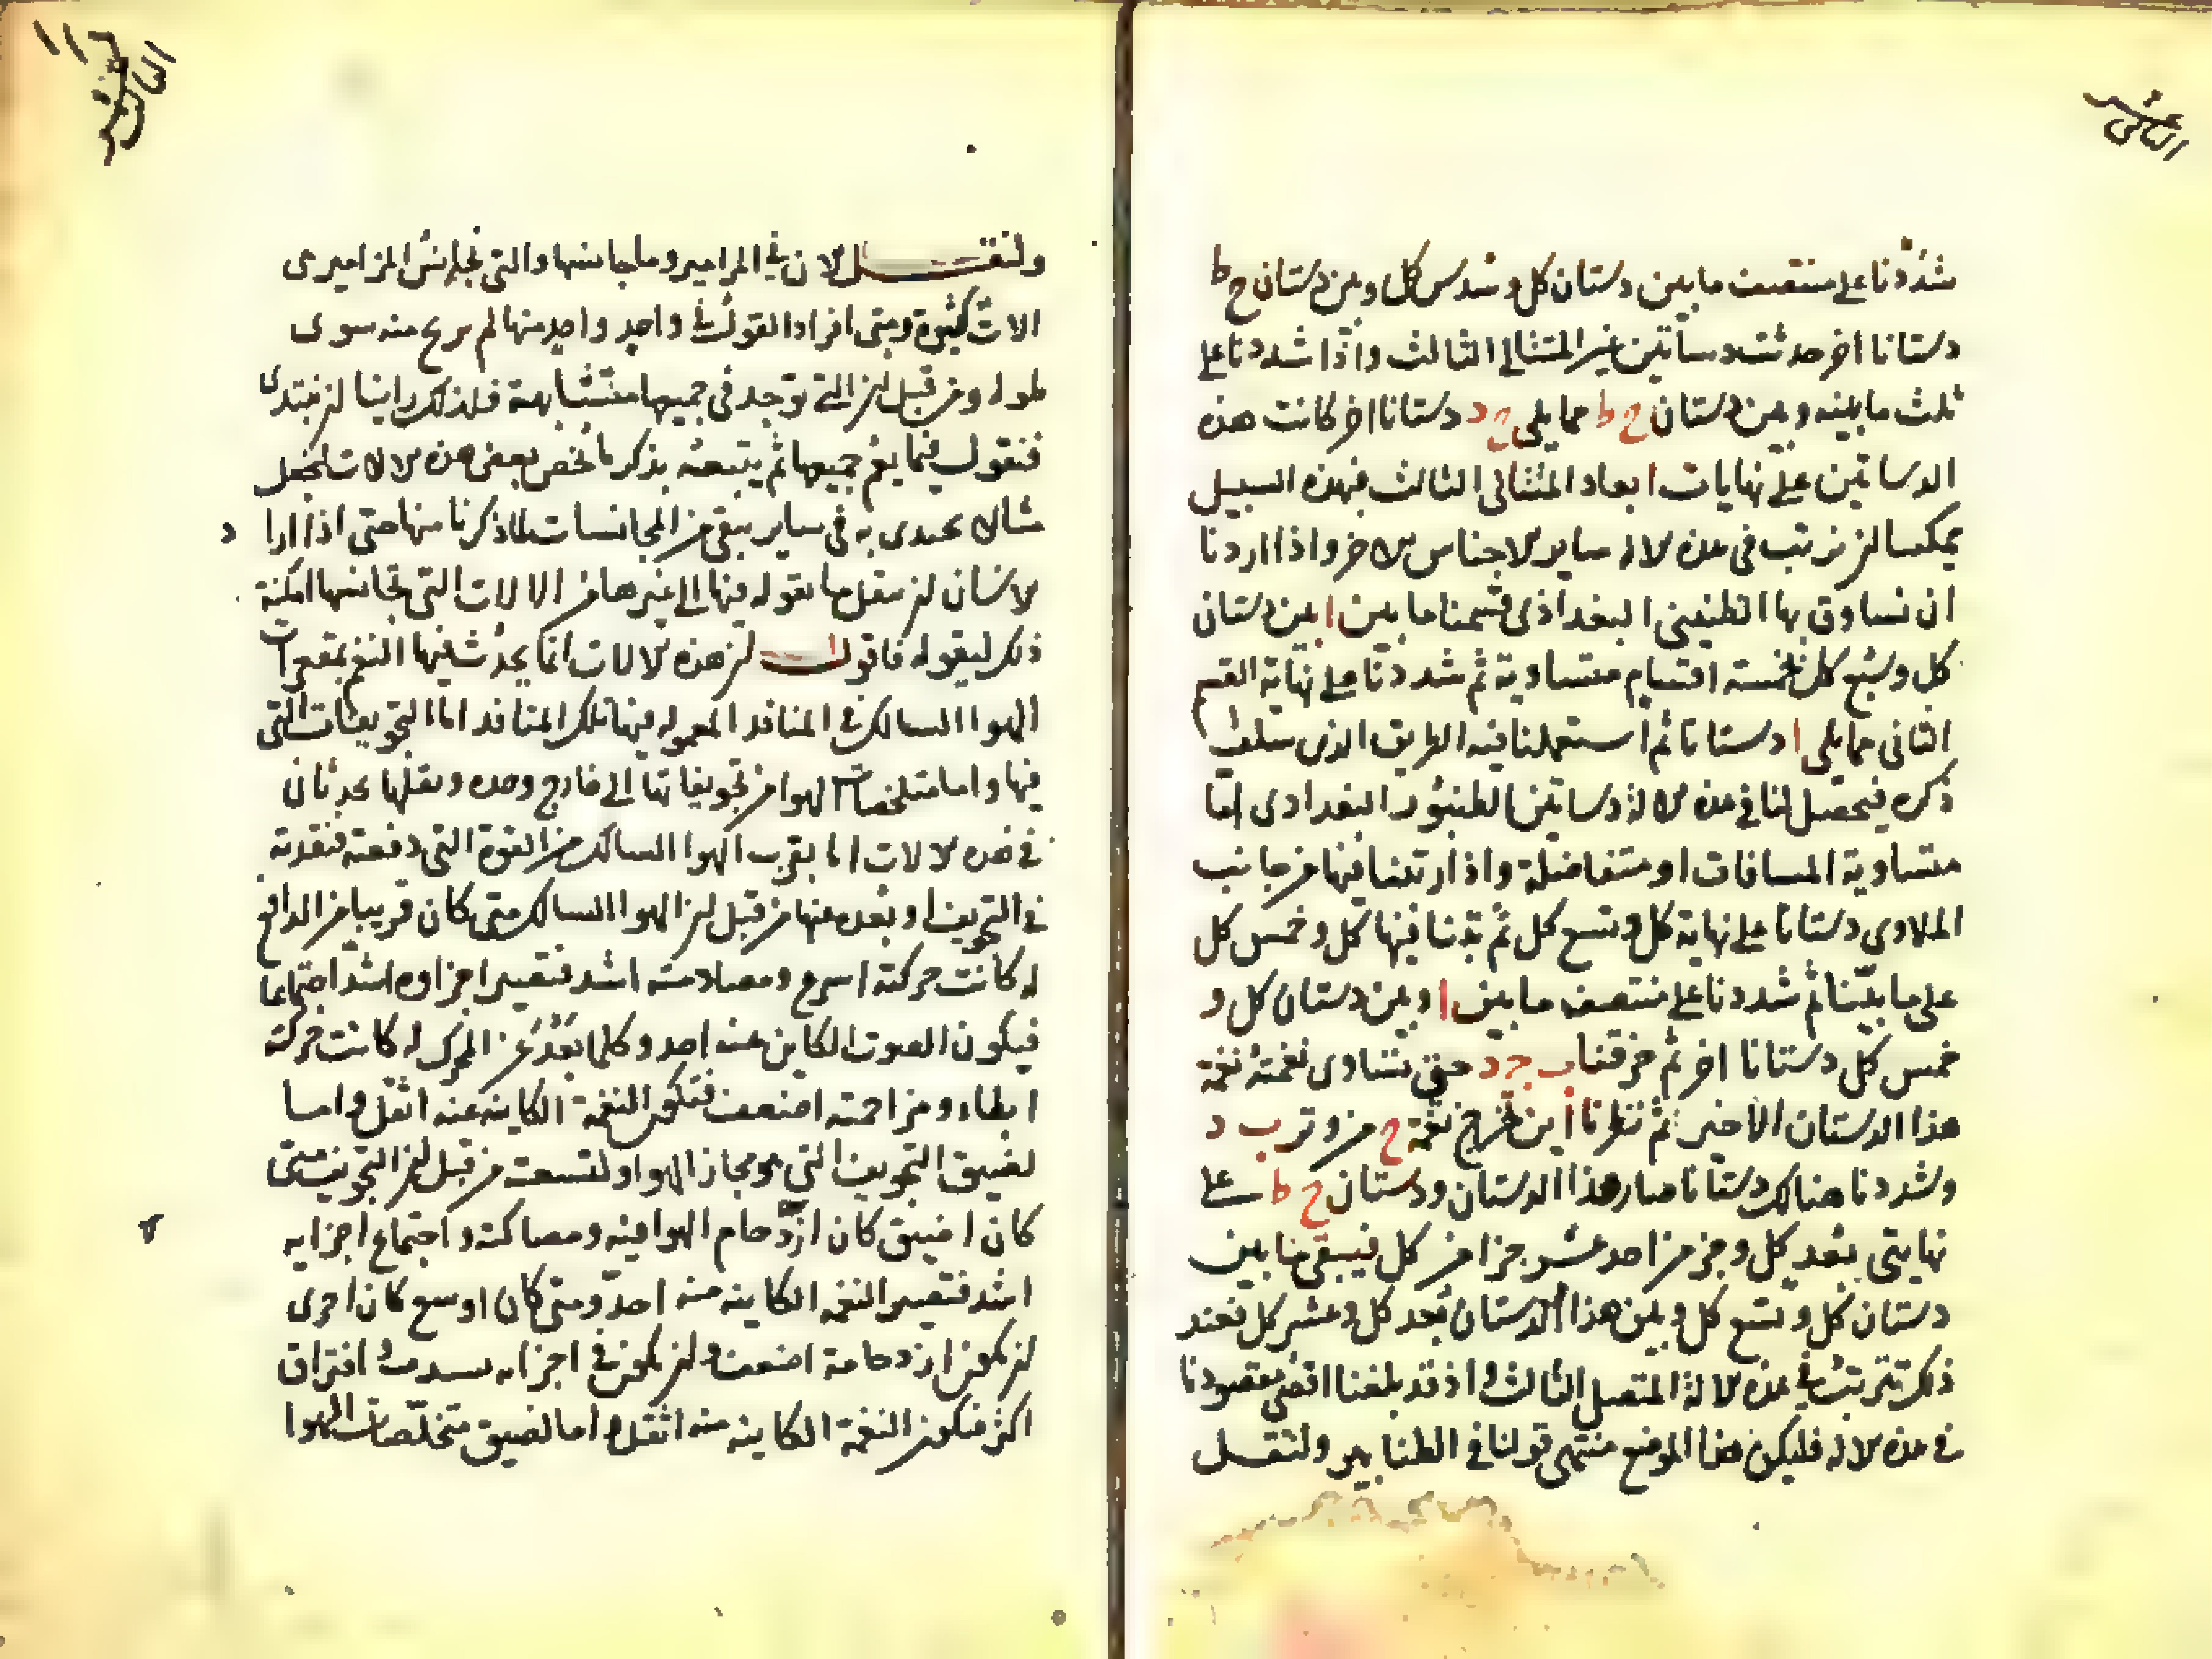 الثانى عشر
شددنا على منتصف ما بين دستان كل وسدس كل وبين دستان ح ط
دستانا اخر حدثت دساتين غير المتتالى الثالث واذا شددنا على
ثلث ما بينه وبين دستان ح ط مما يلى ج د دستانا اخر كانت هذه
الدساتين على نهايات ابعاد المتتالى الثالث فبهذه السبيل
يمكننا ان نرتب فى هذه الالة ساير الاجناس الاخر واذا اردنا
ان نساوق بها الطنيننى البغداذى قسمنا ما بين ا بين دستان
كل وسبع كل بخمسة اقسام متساوية ثم شددنا على نهاية القسم
الثانى مما يلى ا دستانا ثم استعملنا فيه الطريق الذى سلف
ذكره فيحصل لنا فى هذه الالة دساتين الطنبور البغدادى اما
متساوية المسافات او متفاضلة واذا رتبنا فيها من جانب
الملاوى دستانا على نهاية كل وتسع كل ثم بينا فيها كل وخمس كل
على ما بيننا ثم شددنا على منتصف ما بين ا وبين دستان كل و
خمس كل دستانا اخر ثم حزقنا ب ج د حتى تساوى نغمته نغمة
هذا الدستان الاخير ثم نظرنا اين تخرج نغمة ح من وتر ب د
وشددنا هنالك دستانا صار هذا الدستان ودستان ح ط على
نهايتى بعد كل وجز من احد عشر جزا من كل فيبقى ما بين
دستان كل وتسع كل وبين هذا الدستان بعد كل وعشر كل فعند
ذلك تترتب فى هذه الالة المتصل الثالث واذ قد بلغنا اقصى مقصودنا
فى هذه الالة فليكن هذا الموضع منتهى قولنا فى الطنابير ولنقل
الثالث عشر ١١
ولنقل الان فى المزامير وما جانسها والتى تجانس المزامير هى
الات كثيرة ومتى افرادا القول فى واحد واحد منها لم يربح منه سوى
طوله ومن قبل ان التى توجد فى جميعها متشابهة فلذلك راينا ان نبتدى
فنقول فيما يعم جميعها ثم يتبعه بذكر ما يخص بعض هذه الالات لنجعل
مثالا يحتدى به فى ساير ما يبقى من المجانسات لما ذكرنا منها حتى اذا ارا د
الانسان ان ينقل ما نقوله فيها الى غيرها من الالات التى تجانسها امكنه
ذلك ليقوله فاقول ان هذه الالات انما يحدث فيها النغم بمقعرات
الهوا السالك فى المنافد المعموله فيها تلك المنافد اما التجويفات التى
فيها واما متخلصات الهوا من تجويفاتها الى خارج وحده وثقلها يحدثان
فى هذه الالات اما بقرب الهوا السالك من القوة التى دفعته فنفذته
فى التجويف او بعده عنها من قبل ان الهوا السالك متى كان قريبا من الدافع
له كانت حركته اسرع ومصادمته اشد فتصير اجزاوه اشد اجتماعا
فيكون الصوت الكاين عنه احد وكلما بعد عن المحرك له كانت حركته
ابطاء ومزاحمته اضعف فتكون النغمة الكاينه عنه اثقل واما
لضيق التجويف التى هو مجاز الهوا ولتسعت من قبل ان التجويف متى
كان اضيق كان ازدحام الهوا فيه ومصاكته واجتماع اجزايه
اشد فتصير النغمه الكاينه منه احد ومتى كان اوسع كان احرى
ان تكون ازدحامه اضعف وان يكون فى اجزايه افتراق
اكثر فتكون النغمة الكاينه منه اثقل واما لضيق متخلصات الهوا